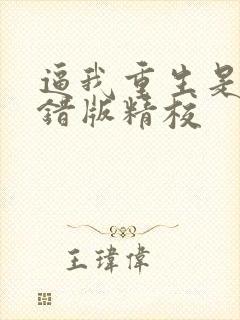 逼我重生是
错版精校
王瑋偉